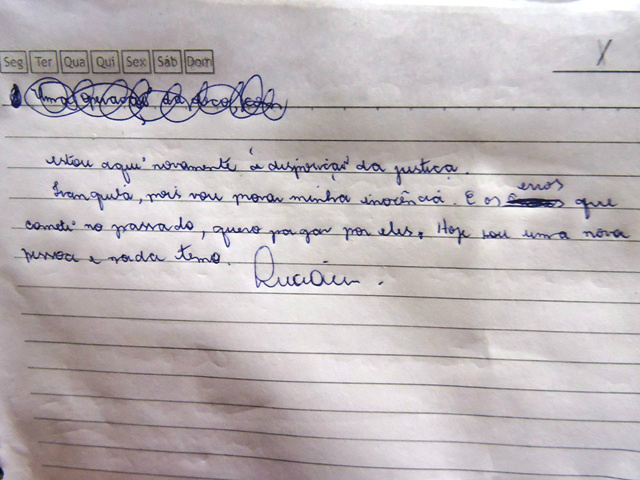 Seg Ter Qua Qui Sex Sáb Dom
X
estou aqui novamente á disposição da justiça.
Tranquila, pois vou provar minha inocência. E os erros que
cometi no passado, quero pagar por eles. Hoje sou uma nova
pessoa e nada temo.